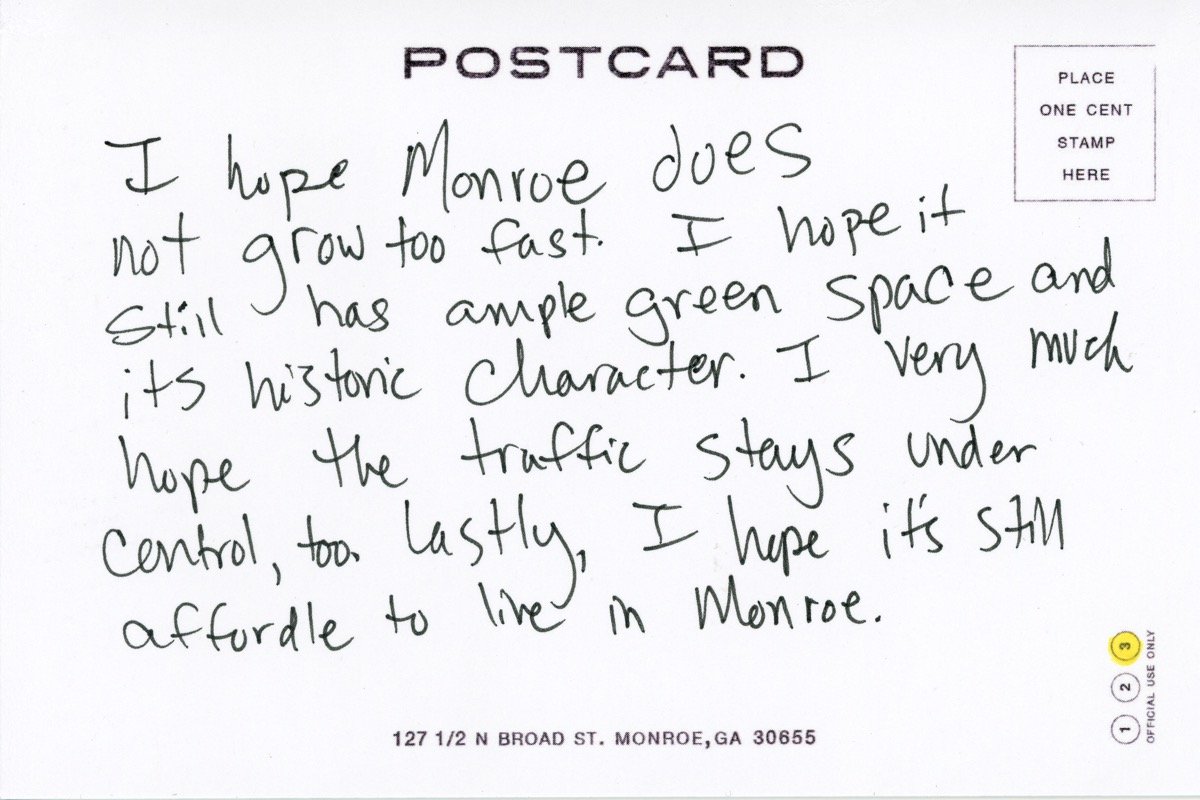 POSTCARD
PLACE
ONE CENT
STAMP
HERE
I hope Monroe does
not grow too fast. I hope it
still has ample green space and
its historic character. I very much
hope the traffic stays under
control, too. Lastly, I hope it's still
affordle to live in Monroe.
127 1/2 N BROAD ST. MONROE,GA 30655
1 2 3
OFFICIAL USE ONLY